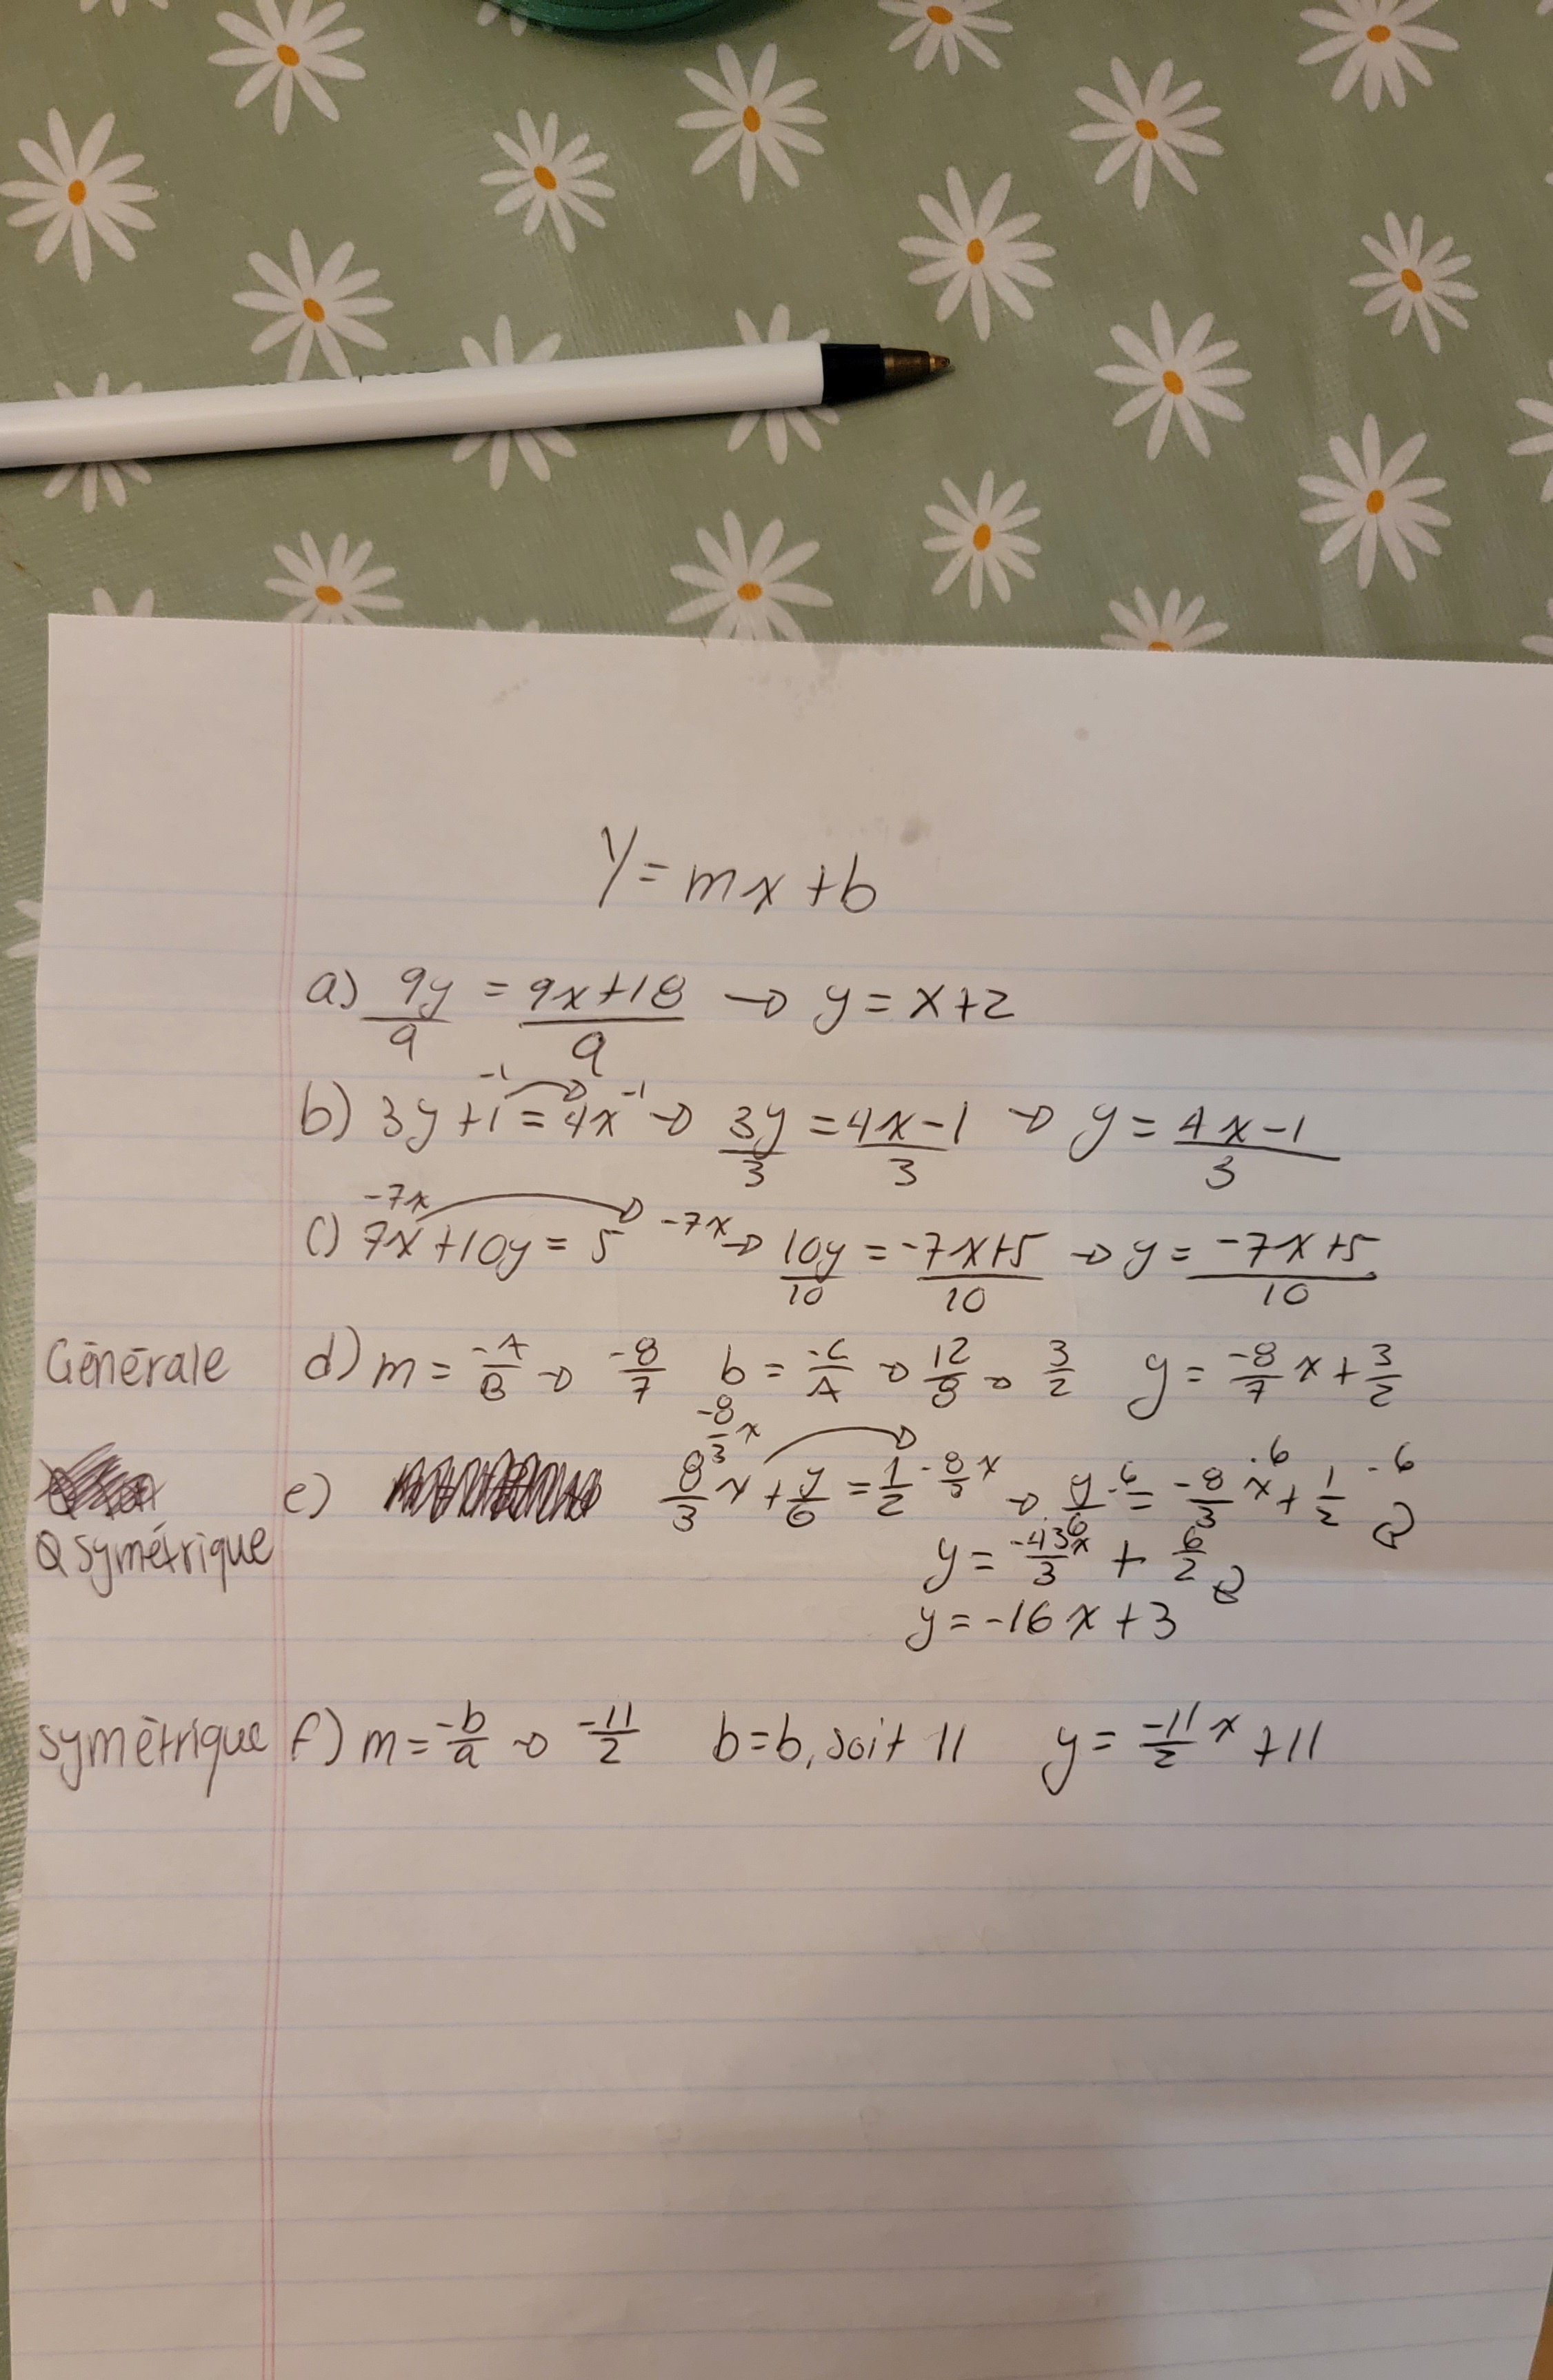 y = mx + b
a) 9y/9 = 9x+18/9 → y = x+2
b) 3y+1 -1 = 4x -1 → 3y/3 = 4x-1/3 → y = 4x-1/3
c) 7x -7x +10y = 5 -7x → 10y/10 = -7x+5/10 → y = -7x+5/10
Générale d) m = -A/B → -8/7 b = -C/A → 12/8 → 3/2 y = -8/7 x + 3/2
e) -8/3 x 8/3 x + y/6 = 1/2 - 8/3 x → y/6 ·6 = -8/3 x ·6 + 1/2 ·6
Symétrique y = x/3 + 6/2
y = -16x + 3
Symétrique f) m = -b/a → -11/2 b=b, soit 11 y = -11/2 x + 11